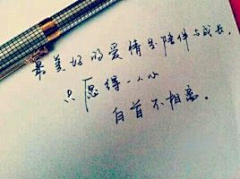 最美好的爱情是陪伴与成长,
只愿得一人心
白首不相离。